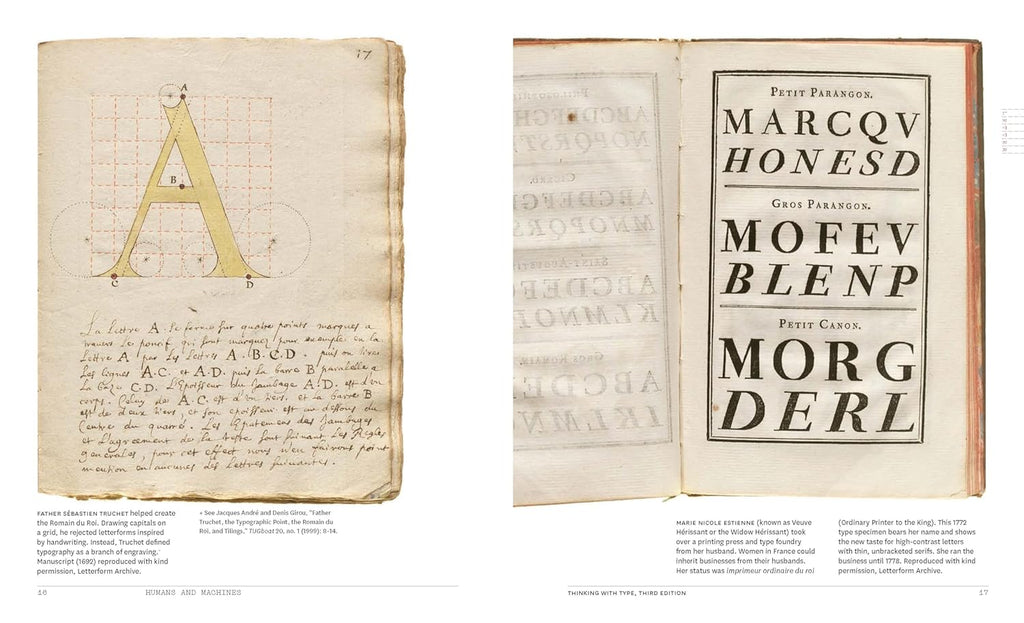 17
A
B
C
D
La lettre A. se forme sur quatre points marques a
travers le poncif qui sont marques pour exemple en la
Lettre A par les lettres A.B.C.D. puis on tire
les lignes A.C. et A.D. puis la barre B parallele a
la baze C.D. L'Epoisseur du Jambage A.D. est d'un
corps. Celuy des A.C. est d'un tiers. et la barre B
est de deux tiers, et son epoisseur est au dessous du
Centre du quarré. Les Epatemens des Jambages
et L'agreement de la teste sont suivant les Regles
generales, pour cet effect nous n'en fairons point
mention en aucunes des lettres suivantes.
FATHER SÉBASTIEN TRUCHET helped create
the Romain du Roi. Drawing capitals on
a grid, he rejected letterforms inspired
by handwriting. Instead, Truchet defined
typography as a branch of engraving.
Manuscript (1692) reproduced with kind
permission, Letterform Archive.
See Jacques André and Denis Girou, "Father
Truchet, the Typographic Point, the Romain du
Roi, and Tilings," TUGboat 20, no. 1 (1999): 8–14.
16 HUMANS AND MACHINES
PETIT PARANGON.
MARCQV
HONESD
GROS PARANGON.
MOFEV
BLENP
PETIT CANON.
MORG
DERL
MARIE NICOLE ESTIENNE (known as Veuve
Hérissant or the Widow Hérissant) took
over a printing press and type foundry
from her husband. Women in France could
inherit businesses from their husbands.
Her status was imprimeur ordinaire du roi
(Ordinary Printer to the King). This 1772
type specimen bears her name and shows
the new taste for high-contrast letters
with thin, unbracketed serifs. She ran the
business until 1778. Reproduced with kind
permission, Letterform Archive.
THINKING WITH TYPE, THIRD EDITION 17